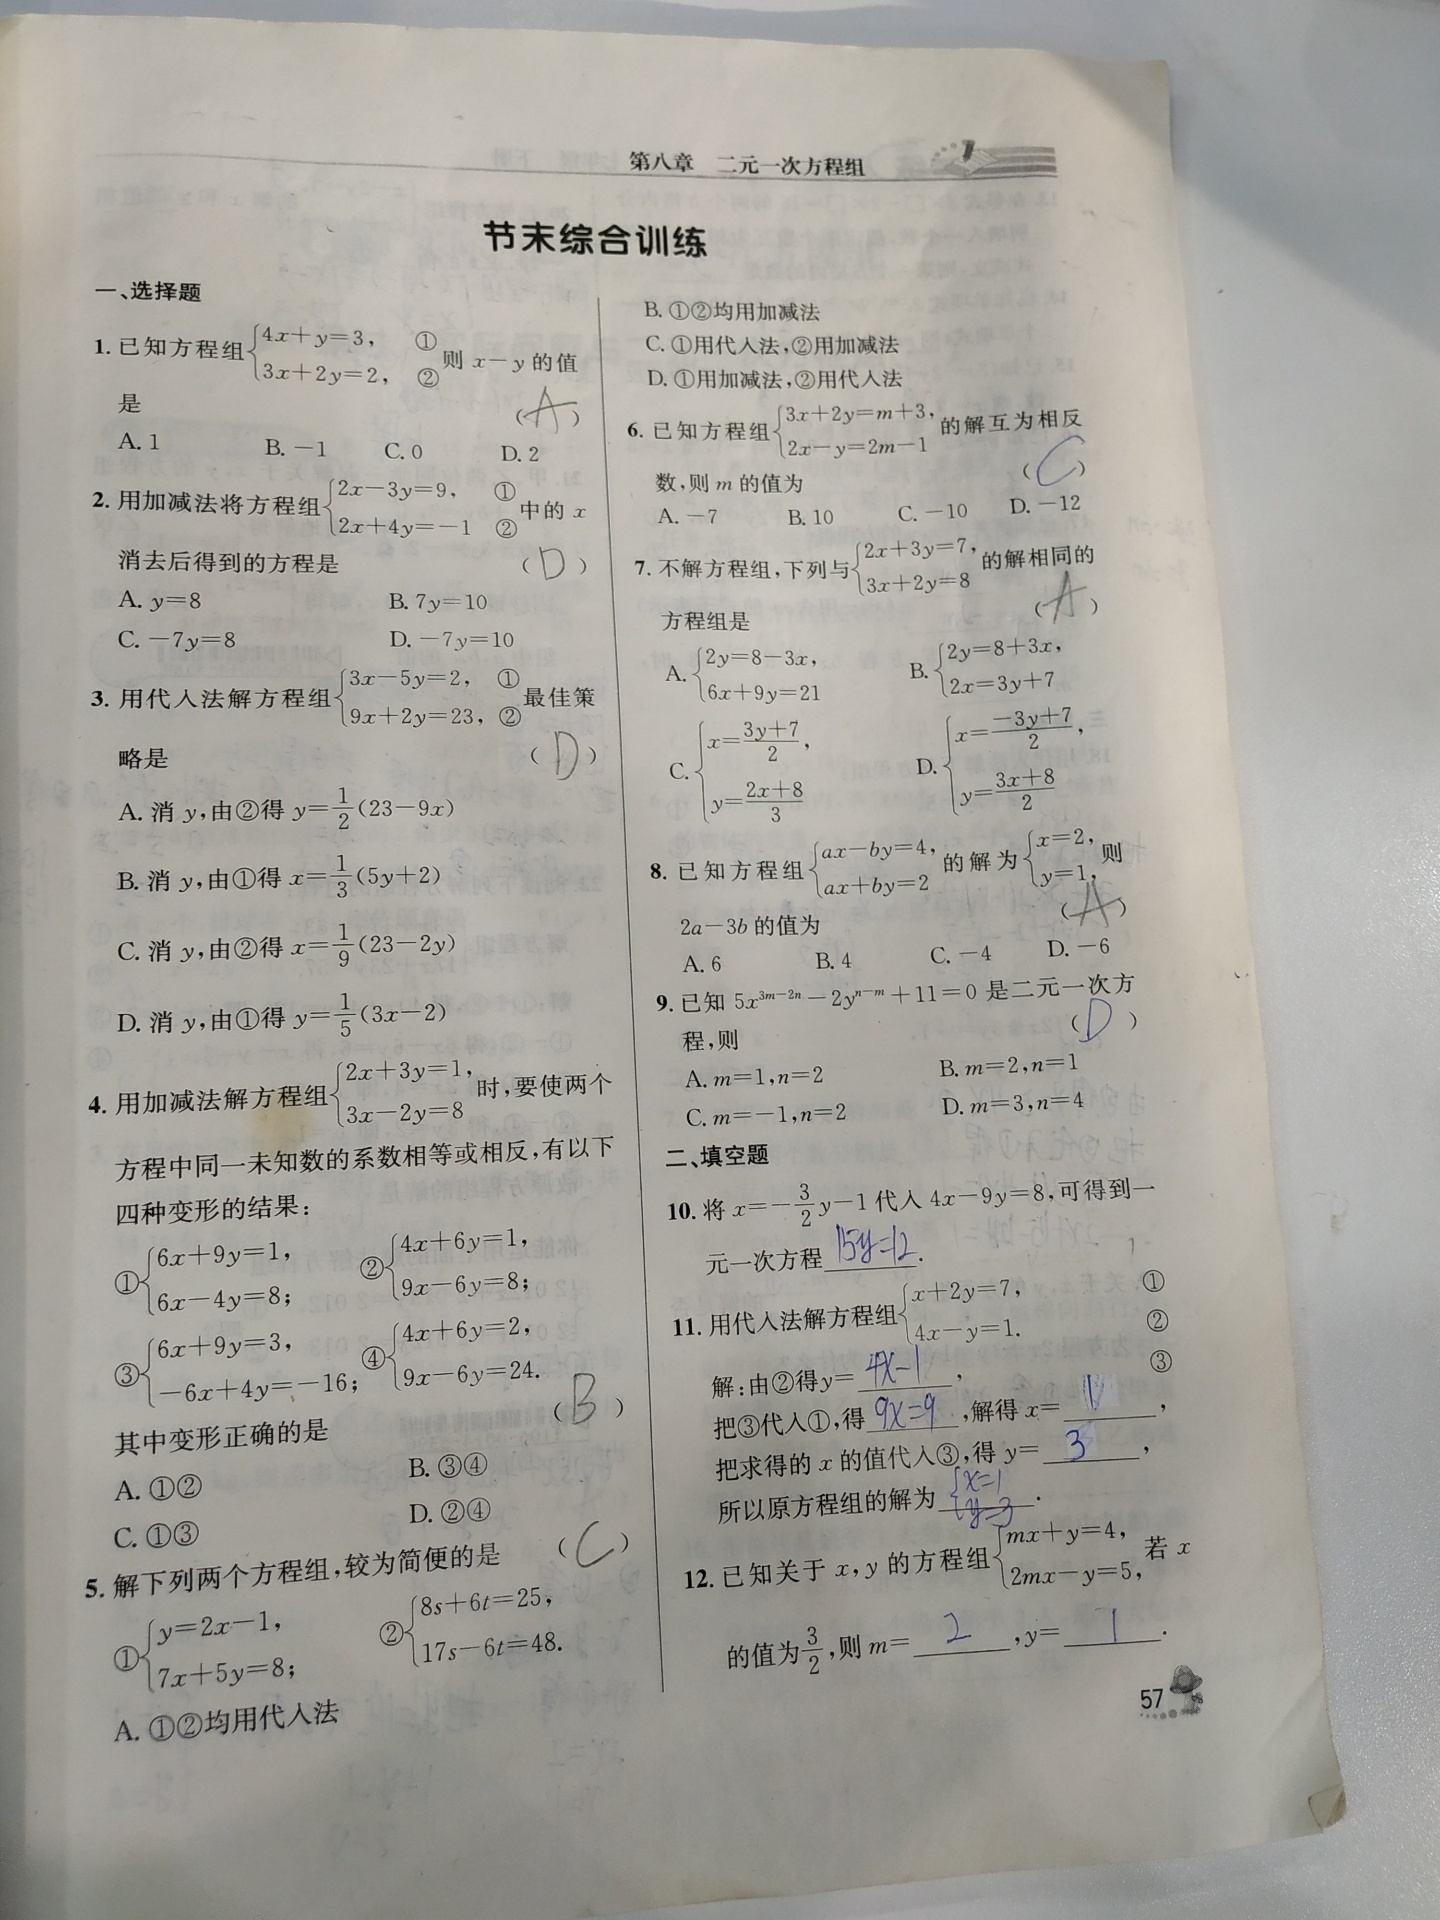 第八章 二元一次方程组
节末综合训练
一、选择题
1. 已知方程组{4x+y=3, ① 3x+2y=2, ② 则 x-y 的值
是 (A)
A. 1 B. -1 C. 0 D. 2
2. 用加减法将方程组{2x-3y=9, ① 2x+4y=-1 ② 中的 x
消去后得到的方程是 (D)
A. y=8 B. 7y=10
C. -7y=8 D. -7y=10
3. 用代入法解方程组{3x-5y=2, ① 9x+2y=23, ② 最佳策
略是 (D)
A. 消 y,由②得 y=1/2(23-9x)
B. 消 y,由①得 x=1/3(5y+2)
C. 消 y,由②得 x=1/9(23-2y)
D. 消 y,由①得 y=1/5(3x-2)
4. 用加减法解方程组{2x+3y=1, 3x-2y=8 时,要使两个
方程中同一未知数的系数相等或相反,有以下
四种变形的结果:
①{6x+9y=1, 6x-4y=8; ②{4x+6y=1, 9x-6y=8;
③{6x+9y=3, -6x+4y=-16; ④{4x+6y=2, 9x-6y=24.
其中变形正确的是 (B)
A. ①② B. ③④
C. ①③ D. ②④
5. 解下列两个方程组,较为简便的是 (C)
①{y=2x-1, 7x+5y=8; ②{8s+6t=25, 17s-6t=48.
A. ①②均用代入法
B. ①②均用加减法
C. ①用代入法,②用加减法
D. ①用加减法,②用代入法
6. 已知方程组{3x+2y=m+3, 2x-y=2m-1 的解互为相反
数,则 m 的值为 (C)
A. -7 B. 10 C. -10 D. -12
7. 不解方程组,下列与{2x+3y=7, 3x+2y=8 的解相同的
方程组是 (A)
A. {2y=8-3x, 6x+9y=21 B. {2y=8+3x, 2x=3y+7
C. {x=(3y+7)/2, y=(2x+8)/3 D. {x=(-3y+7)/2, y=(3x+8)/2
8. 已知方程组{ax-by=4, ax+by=2 的解为{x=2, y=1, 则
2a-3b 的值为 (A)
A. 6 B. 4 C. -4 D. -6
9. 已知 5x^(3m-2n)-2y^(n-m)+11=0 是二元一次方
程,则 (D)
A. m=1,n=2 B. m=2,n=1
C. m=-1,n=2 D. m=3,n=4
二、填空题
10. 将 x=-3/2y-1 代入 4x-9y=8,可得到一
元一次方程 15y=12.
11. 用代入法解方程组{x+2y=7, ① 4x-y=1. ②
解:由②得y=4x-1, ③
把③代入①,得 9x=9,解得 x=1,
把求得的 x 的值代入③,得 y=3,
所以原方程组的解为{x=1 y=3.
12. 已知关于 x,y 的方程组{mx+y=4, 2mx-y=5, 若 x
的值为3/2,则 m=2,y=1.
57